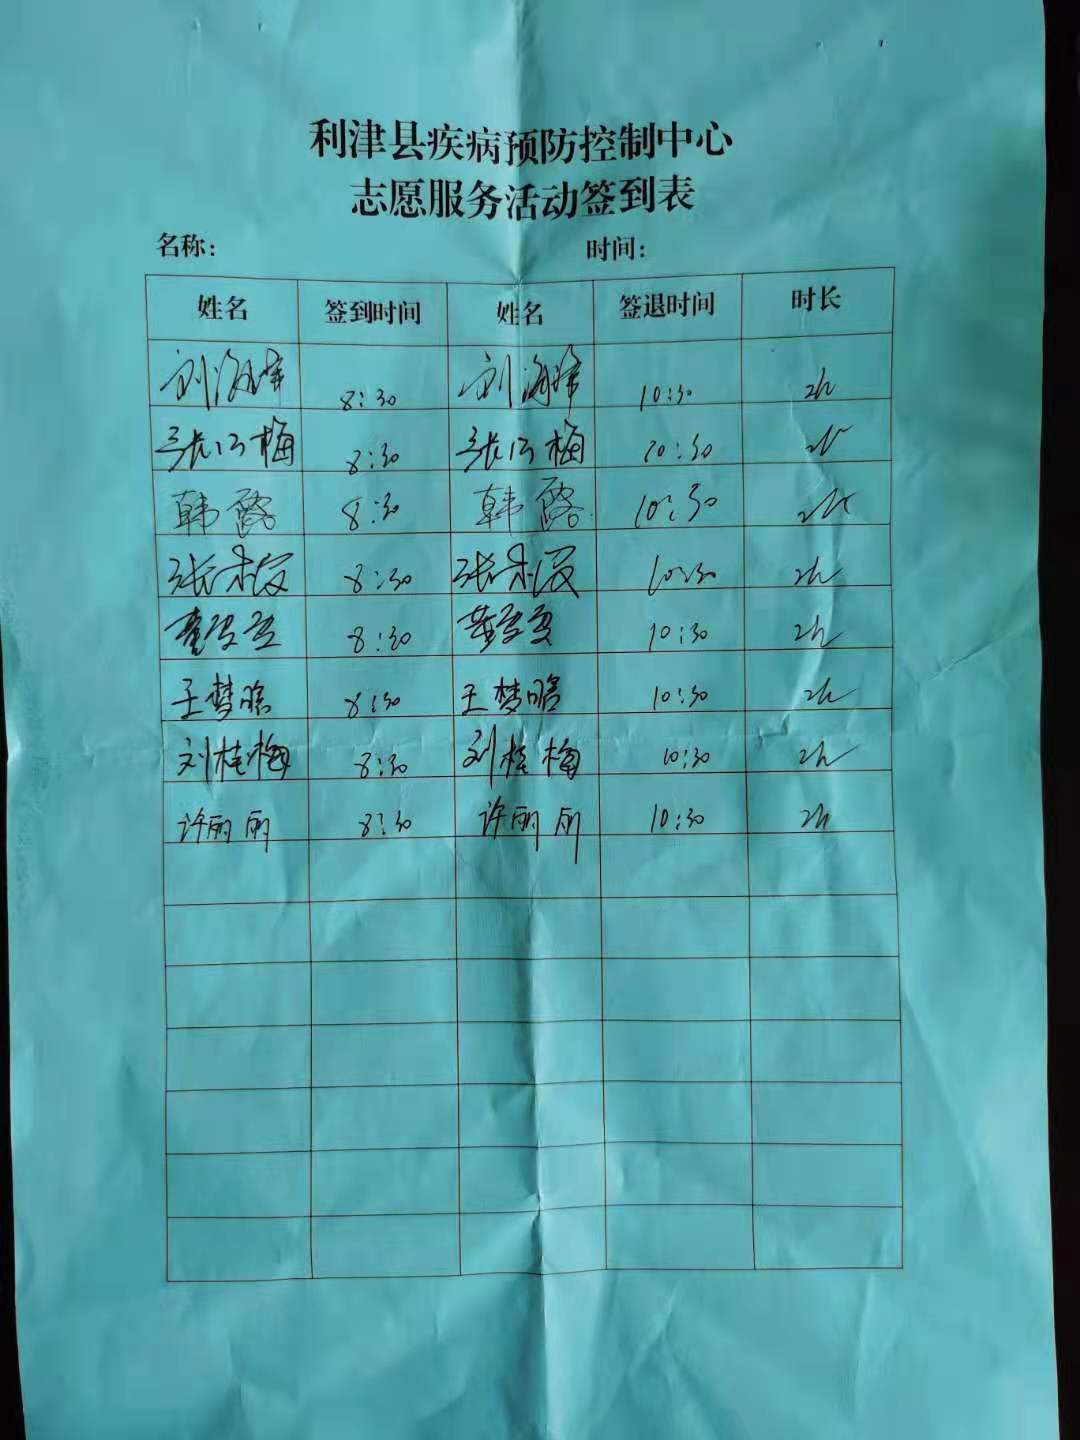 利津县疾病预防控制中心
志愿服务活动签到表
名称： 时间：
姓名 签到时间 姓名 签退时间 时长
刘海峰 8:30 刘海峰 10:30 2h
张公梅 8:30 张公梅 10:30 2h
韩露 8:30 韩露 10:30 2h
张 8:30 张 10:30 2h
董 8:30 董 10:30 2h
王梦晗 8:30 王梦晗 10:30 2h
刘桂梅 8:30 刘桂梅 10:30 2h
许丽丽 8:30 许丽丽 10:30 2h